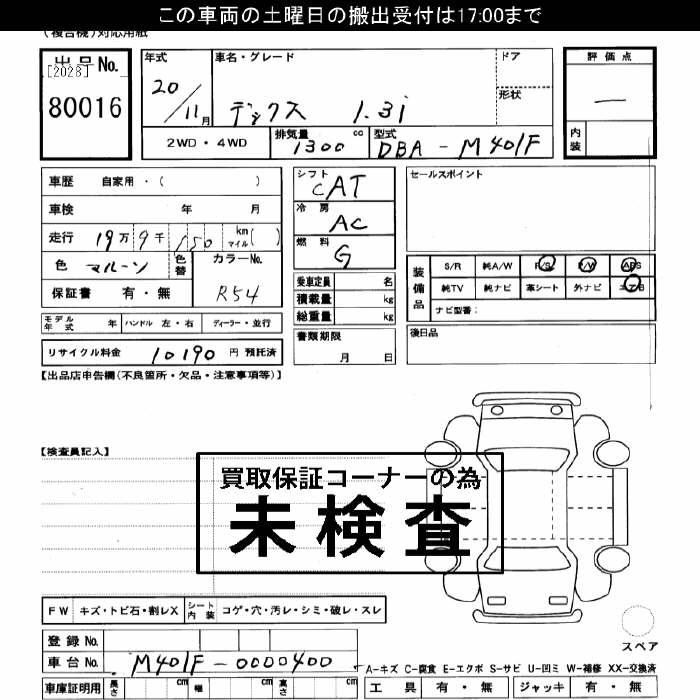 この車両の土曜日の搬出受付は17:00まで
(複合機)対応用紙
出品No.
[2028]
80016
年式
20/11月
車名・グレード
デックス 1.3i
ドア
形状
2WD・4WD
排気量
1300 cc
型式
DBA-M401F
評価点
―
内装
車歴 自家用・( )
車検 年 月
走行 19万9千150 km マイル( )
色 マルーン
色替
カラーNo.
R54
保証書 有・無
シフト
CAT
冷房
AC
燃料
G
乗車定員 名
積載量 kg
総重量 kg
セールスポイント
装備品
S/R 純A/W P/S P/W ABS
純TV 純ナビ 革シート 外ナビ エアB
ナビ型番:
モデル年式 年 ハンドル 左・右 ディーラー・並行
リサイクル料金 10190 円 預託済
書類期限
月 日
後日品
【出品店申告欄(不良箇所・欠品・注意事項等)】
【検査員記入】
買取保証コーナーの為
未検査
FW キズ・トビ石・割レX
シート内装 コゲ・穴・汚レ・シミ・破レ・スレ
スペア
登録No.
車台No. M401F-0000400
A-キズ C-腐食 E-エクボ S-サビ U-凹ミ W-補修 XX-交換済
車庫証明用 長さ cm 幅 cm 高さ cm
工具 有・無 ジャッキ 有・無